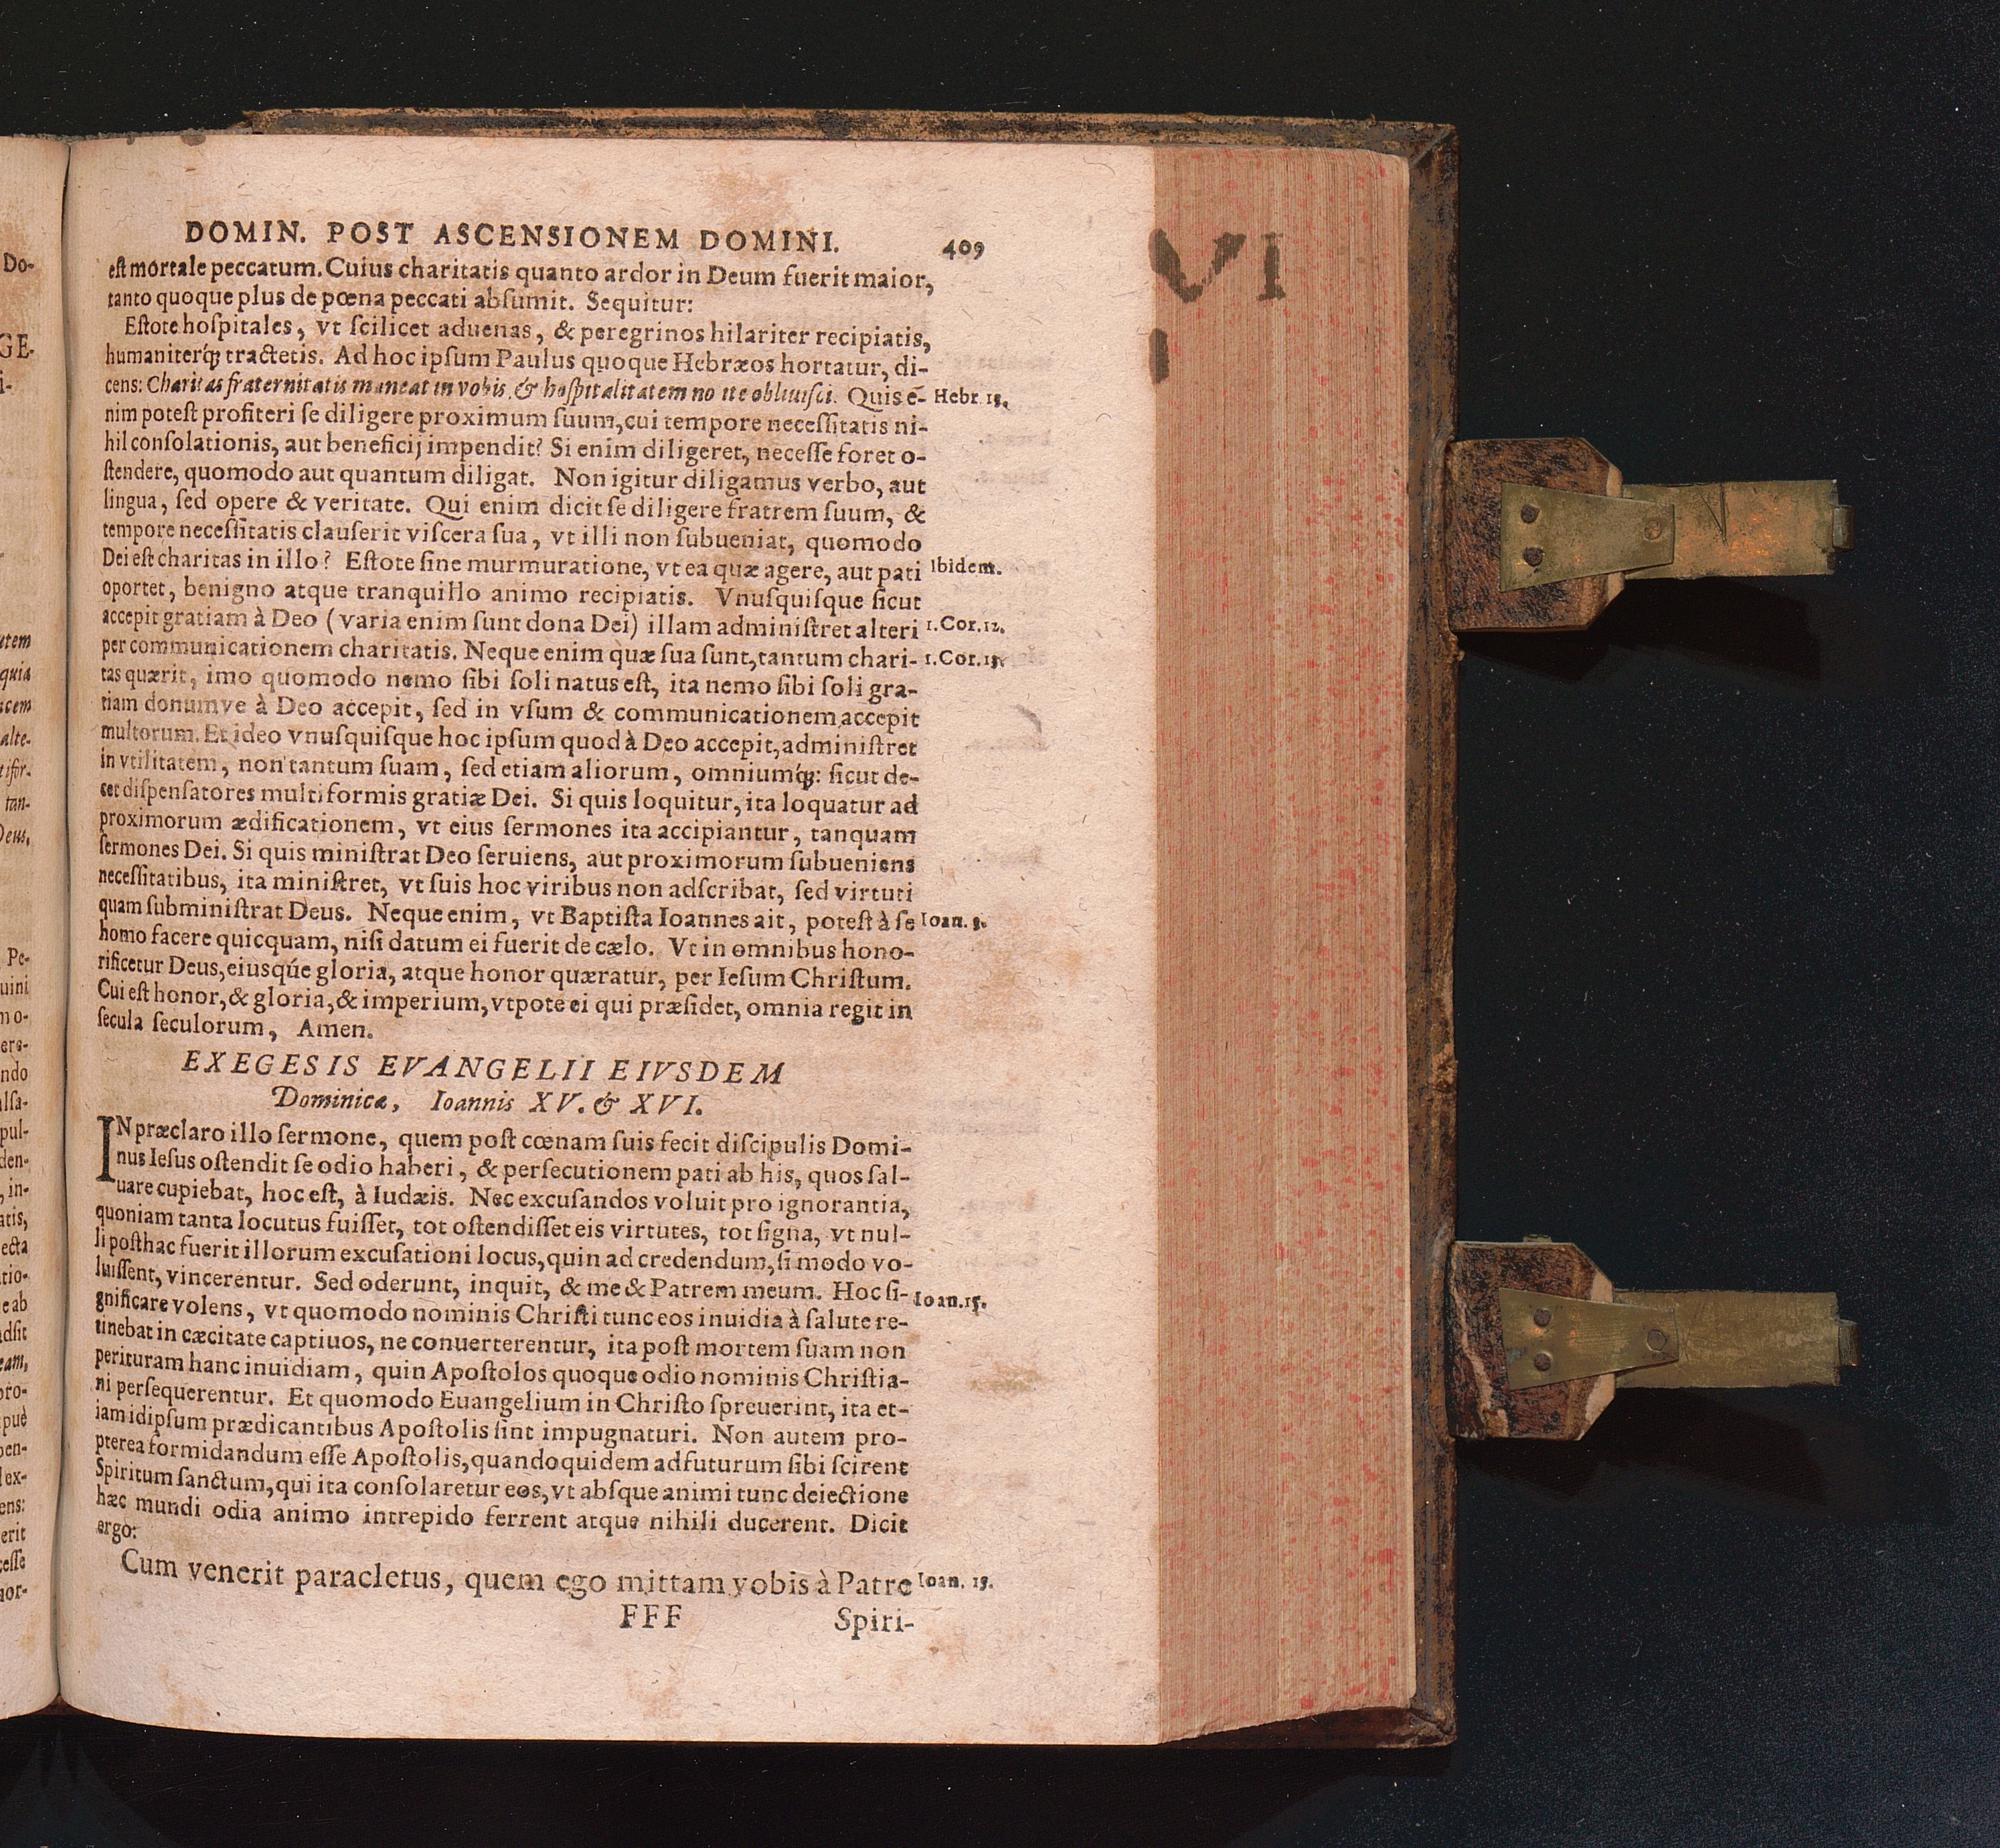 DOMIN. POST ASCENSIONEM DOMINI. 409
est mortale peccatum. Cuius charitatis quanto ardor in Deum fuerit maior,
tanto quoque plus de pœna peccati absumit. Sequitur:
Estote hospitales, vt scilicet aduenas, & peregrinos hilariter recipiatis,
humaniterq́; tractetis. Ad hoc ipsum Paulus quoque Hebræos hortatur, di-
cens: Charitas fraternitatis maneat in vobis, & hospitalitatem nolite obliuisci. Quis ē- Hebr. 13.
nim potest profiteri se diligere proximum suum, cui tempore necessitatis ni-
hil consolationis, aut beneficij impendit? Si enim diligeret, necesse foret o-
stendere, quomodo aut quantum diligat. Non igitur diligamus verbo, aut
lingua, sed opere & veritate. Qui enim dicit se diligere fratrem suum, &
tempore necessitatis clauserit viscera sua, vt illi non subueniat, quomodo
Dei est charitas in illo? Estote sine murmuratione, vt ea quæ agere, aut pati Ibidem.
oportet, benigno atque tranquillo animo recipiatis. Vnusquisque sicut
accepit gratiam à Deo (varia enim sunt dona Dei) illam administret alteri 1. Cor. 12.
per communicationem charitatis. Neque enim quæ sua sunt, tantum chari- 1. Cor. 13.
tas quærit, imo quomodo nemo sibi soli natus est, ita nemo sibi soli gra-
tiam donumve à Deo accepit, sed in vsum & communicationem accepit
multorum. Et ideo vnusquisque hoc ipsum quod à Deo accepit, administret
in vtilitatem, non tantum suam, sed etiam aliorum, omniumq́;: sicut de-
cet dispensatores multiformis gratiæ Dei. Si quis loquitur, ita loquatur ad
proximorum ædificationem, vt eius sermones ita accipiantur, tanquam
sermones Dei. Si quis ministrat Deo seruiens, aut proximorum subueniens
necessitatibus, ita ministret, vt suis hoc viribus non adscribat, sed virtuti
quam subministrat Deus. Neque enim, vt Baptista Ioannes ait, potest à se Ioan. 3.
homo facere quicquam, nisi datum ei fuerit de cælo. Vt in omnibus hono-
rificetur Deus, eiusqúe gloria, atque honor quæratur, per Iesum Christum.
Cui est honor, & gloria, & imperium, vtpote ei qui præsidet, omnia regit in
secula seculorum, Amen.
EXEGESIS EVANGELII EIVSDEM
Dominicæ, Ioannis XV. & XVI.
IN præclaro illo sermone, quem post cœnam suis fecit discipulis Domi-
nus Iesus ostendit se odio haberi, & persecutionem pati ab his, quos sal-
uare cupiebat, hoc est, à Iudæis. Nec excusandos voluit pro ignorantia,
quoniam tanta locutus fuisset, tot ostendisset eis virtutes, tot signa, vt nul-
li posthac fuerit illorum excusationi locus, quin ad credendum, si modo vo-
luissent, vincerentur. Sed oderunt, inquit, & me & Patrem meum. Hoc si- Ioan. 15.
gnificare volens, vt quomodo nominis Christi tunc eos inuidia à salute re-
tinebat in cæcitate captiuos, ne conuerterentur, ita post mortem suam non
perituram hanc inuidiam, quin Apostolos quoque odio nominis Christia-
ni persequerentur. Et quomodo Euangelium in Christo spreuerint, ita et-
iam idipsum prædicantibus Apostolis sint impugnaturi. Non autem pro-
pterea formidandum esse Apostolis, quandoquidem adfuturum sibi scirent
Spiritum sanctum, qui ita consolaretur eos, vt absque animi tunc deiectione
hæc mundi odia animo intrepido ferrent atque nihili ducerent. Dicit
ergo:
Cum venerit paracletus, quem ego mittam vobis à Patre Ioan. 15.
FFF Spiri-
VI